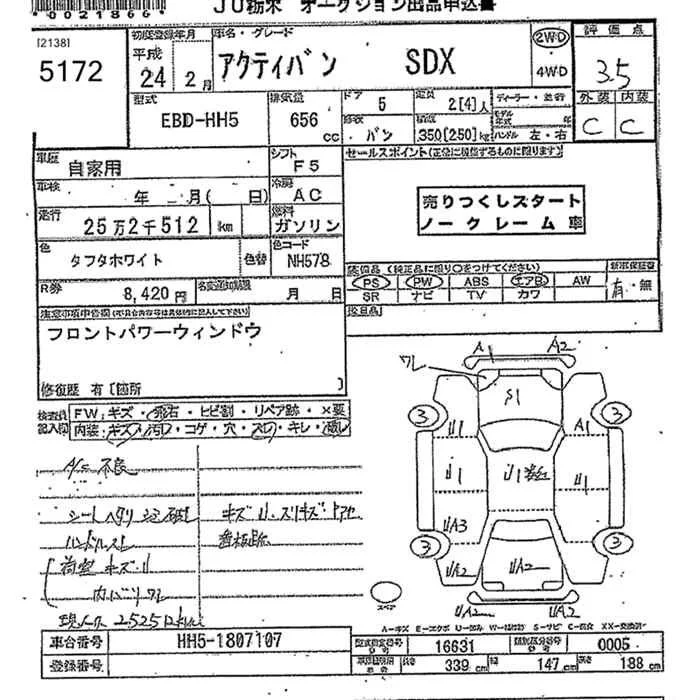 00218661
JU栃木 オークション出品申込書
[2138]
5172
初度登録年月
平成
24 年 2 月
車名・グレード
アクティバン SDX
2WD
4WD
評価点
3.5
外装 内装
C C
型式
EBD-HH5
排気量
656 cc
ドア
5
定員
2[4]人
バン
積載
350[250]kg
ディーラー・並行
モデル年式 年
ハンドル 左・右
車歴
自家用
シフト
F5
車検
年 月( 日)
冷房
AC
走行
25万2千512 km
燃料
ガソリン
色
タフタホワイト
色替
色コード
NH578
R券
8,420円
名変通知期限
月 日
セールスポイント(正位に機能するものに限ります)
売りつくしスタート
ノークレーム車
装備品(純正品に限り○をつけてください)
PS PW ABS エアB AW
SR ナビ TV カワ
新車保証書
有・無
フロントパワーウィンドウ
修復歴 有〔箇所 〕
検査員
記入欄
FW:キズ・飛石・ヒビ割・リペア跡・×要
内装:キズ・汚レ・コゲ・穴・スレ・キレ・破レ
A/C 不良
キズU・スリキズ・ドアセ
内バリワレ
ワレ
A1
A2
S1
3
3
U1
A1
U1
U1
U1
UA3
3
3
UA2
UA2
UA2
UA2
スペア
車台番号
HH5-1807107
登録番号
型式指定番号
16631
類別区分番号
0005
長さ
339 cm
幅
147 cm
高さ
188 cm